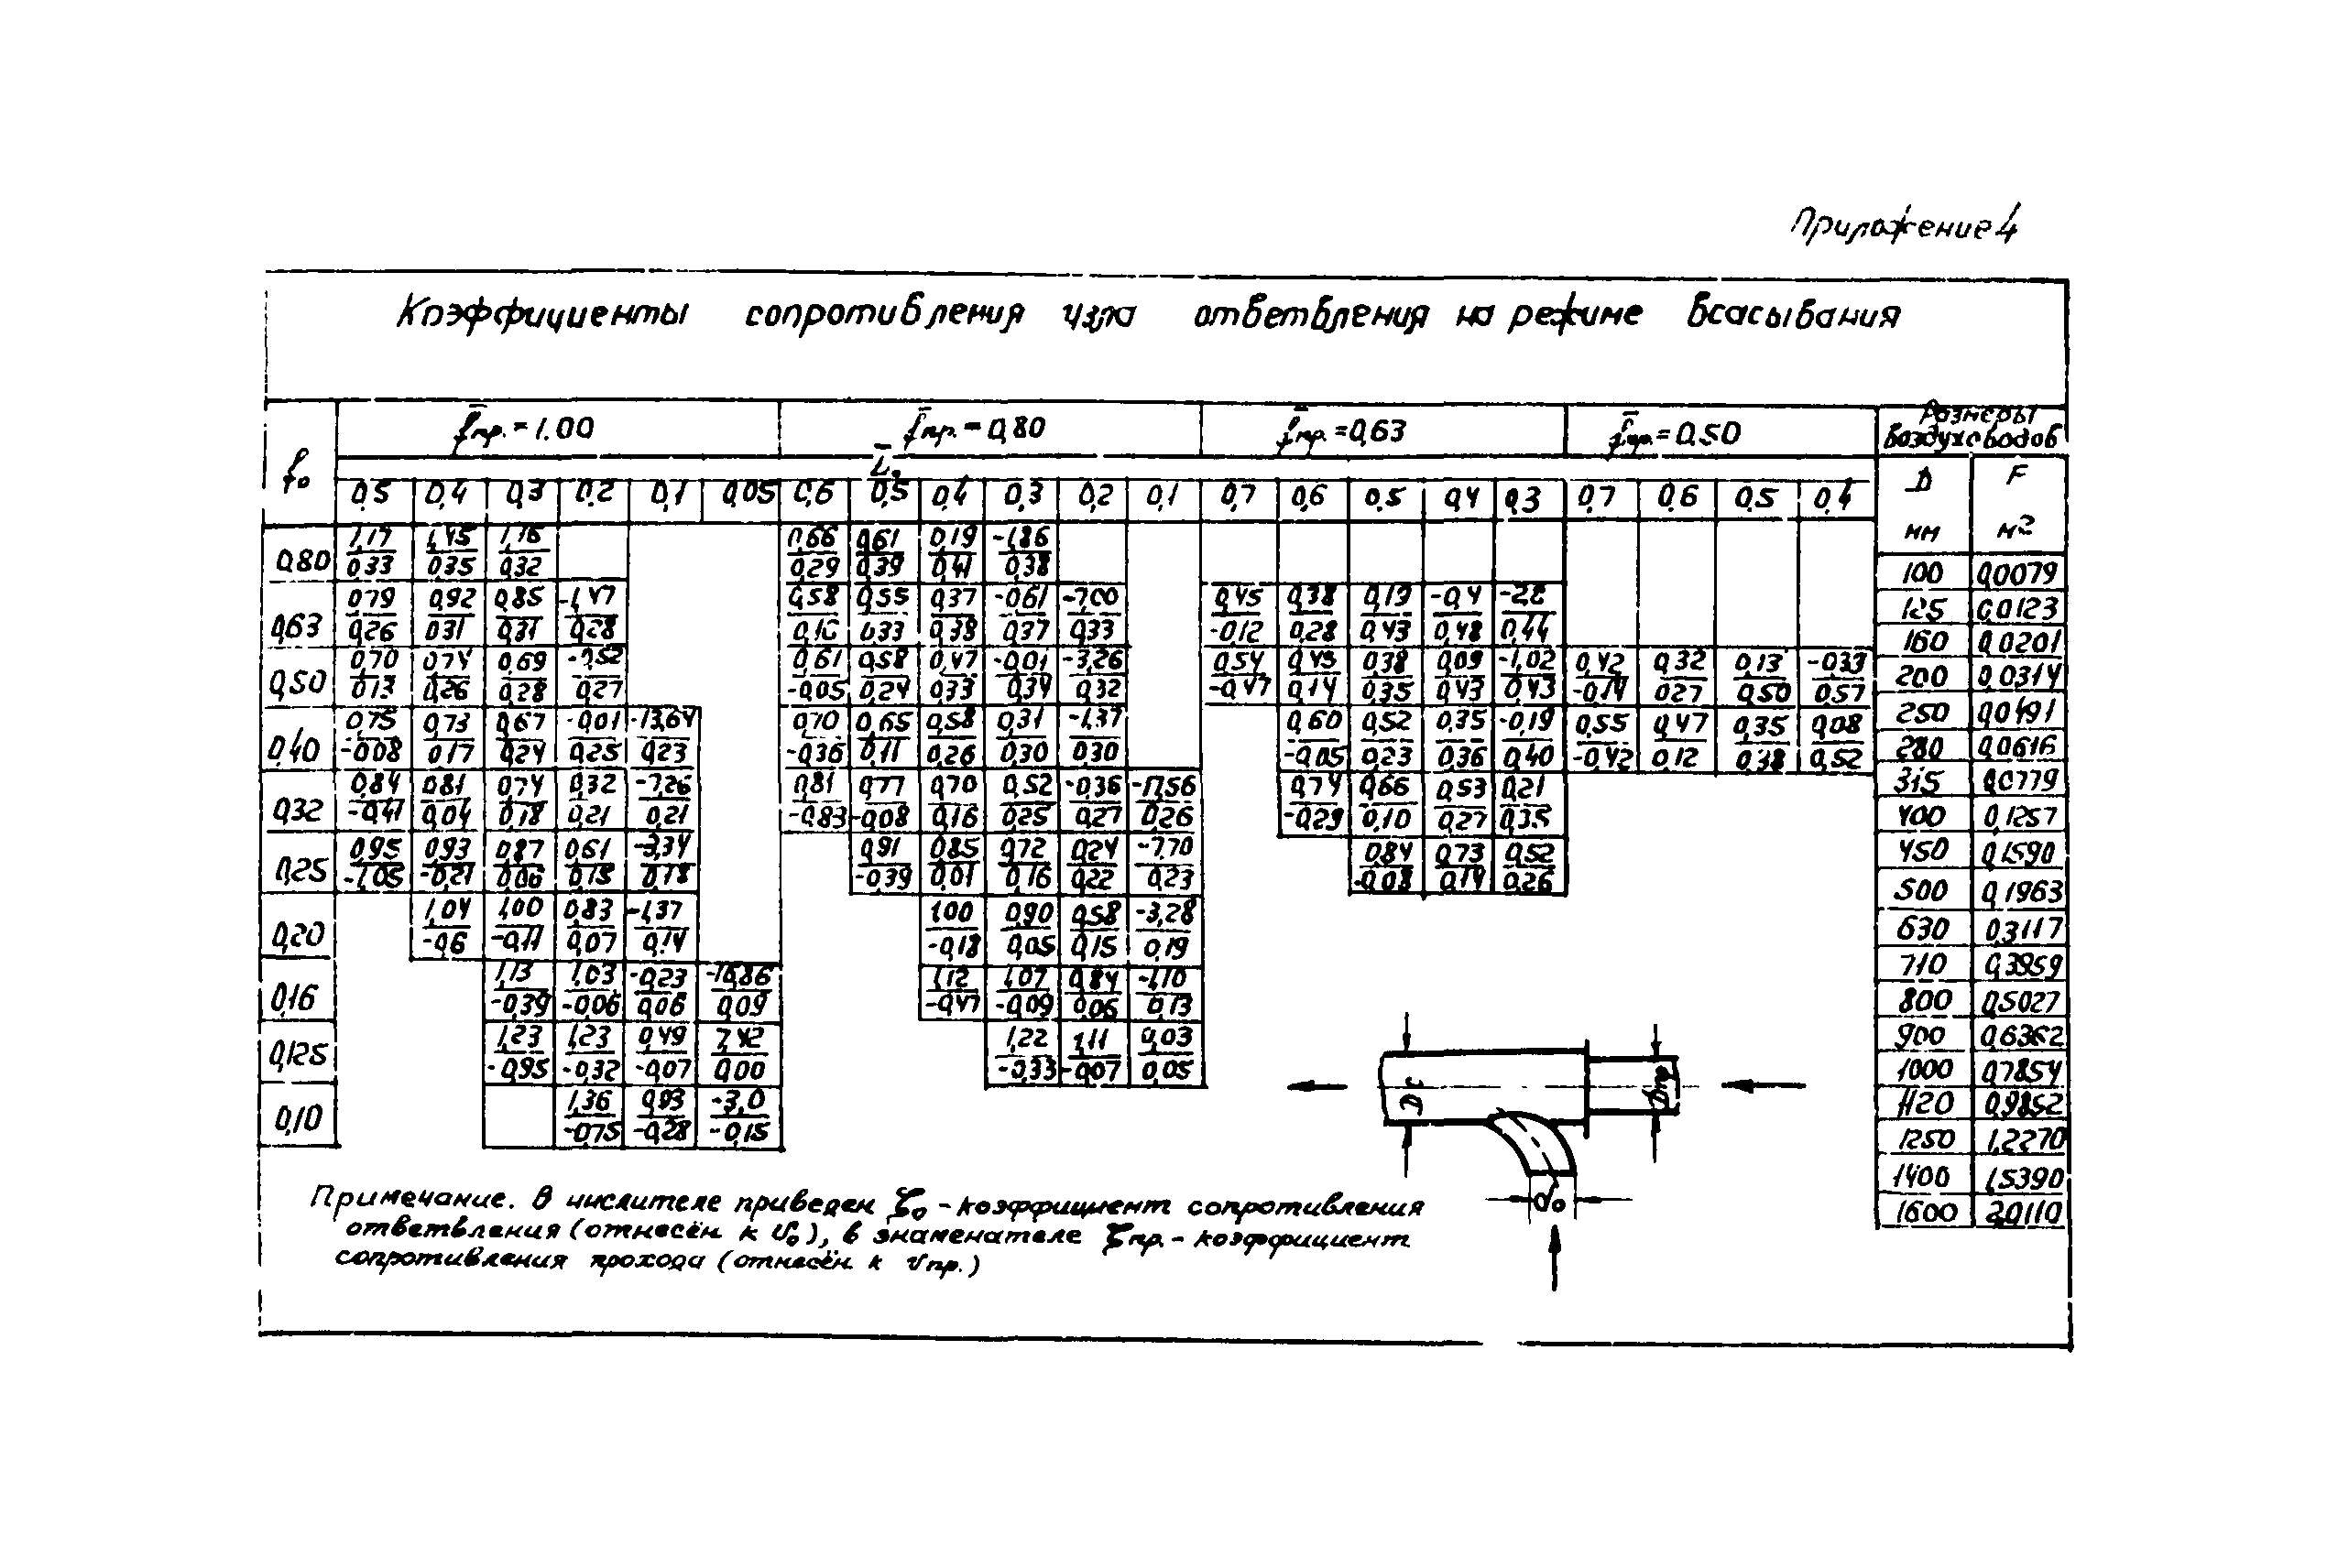 Приложение 4
Коэффициенты сопротивления узла ответвления на режиме всасывания
f̄пр. = 1.00 f̄пр. = 0,80 f̄пр. = 0,63 f̄пр. = 0,50 Размеры воздуховодов
f₀ L̄₀ D мм F м²
0,5 0,4 0,3 0,2 0,1 0,05 0,6 0,5 0,4 0,3 0,2 0,1 0,7 0,6 0,5 0,4 0,3 0,7 0,6 0,5 0,4
0,80
1,17 1,45 1,16 0,66 0,61 0,19 -1,86
0,33 0,35 0,32 0,29 0,39 0,41 0,38
0,63
0,79 0,92 0,85 -1,47 0,58 0,55 0,37 -0,61 -7,00 0,45 0,38 0,13 -0,4 -2,2
0,26 0,31 0,31 0,28 0,16 0,33 0,38 0,37 0,33 -0,12 0,28 0,43 0,48 0,44
0,50
0,70 0,74 0,69 -0,52 0,61 0,58 0,47 -0,01 -3,26 0,54 0,49 0,38 0,09 -1,02 0,42 0,32 0,13 -0,39
0,13 0,26 0,28 0,27 -0,05 0,24 0,33 0,34 0,32 -0,47 0,14 0,35 0,43 0,43 -0,14 0,27 0,50 0,57
0,40
0,75 0,73 0,67 -0,01 -13,64 0,70 0,65 0,58 0,31 -1,37 0,60 0,52 0,35 -0,19 0,55 0,47 0,35 0,08
-0,08 0,17 0,24 0,25 0,23 -0,36 0,11 0,26 0,30 0,30 -0,05 0,23 0,36 0,40 -0,42 0,12 0,38 0,52
0,32
0,84 0,81 0,74 0,32 -7,26 0,81 0,77 0,70 0,52 -0,36 -17,56 0,74 0,66 0,53 0,21
-0,41 0,04 0,18 0,21 0,21 -0,83 -0,08 0,16 0,25 0,27 0,26 -0,29 0,10 0,27 0,35
0,25
0,95 0,93 0,87 0,61 -3,34 0,91 0,85 0,72 0,24 -7,70 0,84 0,73 0,52
-1,05 -0,21 0,06 0,15 0,18 -0,39 0,01 0,16 0,22 0,23 -0,08 0,14 0,26
0,20
1,04 1,00 0,83 -1,37 1,00 0,90 0,58 -3,28
-0,6 -0,11 0,07 0,14 -0,18 0,05 0,15 0,19
0,16
1,13 1,03 -0,23 -16,86 1,12 1,07 0,84 -1,10
-0,39 -0,06 0,06 0,09 -0,47 -0,09 0,06 0,13
0,125
1,23 1,23 0,49 7,42 1,22 1,11 0,03
-0,95 -0,32 -0,07 0,00 -0,33 -0,07 0,05
0,10
1,36 0,93 -3,0
-0,75 -0,28 -0,15
100 0,0079
125 0,0123
160 0,0201
200 0,0314
250 0,0491
280 0,0616
315 0,0779
400 0,1257
450 0,1590
500 0,1963
630 0,3117
710 0,3959
800 0,5027
900 0,6362
1000 0,7854
1120 0,9852
1250 1,2270
1400 1,5390
1600 2,0110
Dс Dпр
d₀
Примечание. В числителе приведен ζ₀ - коэффициент сопротивления
ответвления (отнесён к v₀), в знаменателе ζпр. - коэффициент
сопротивления прохода (отнесён к vпр.)